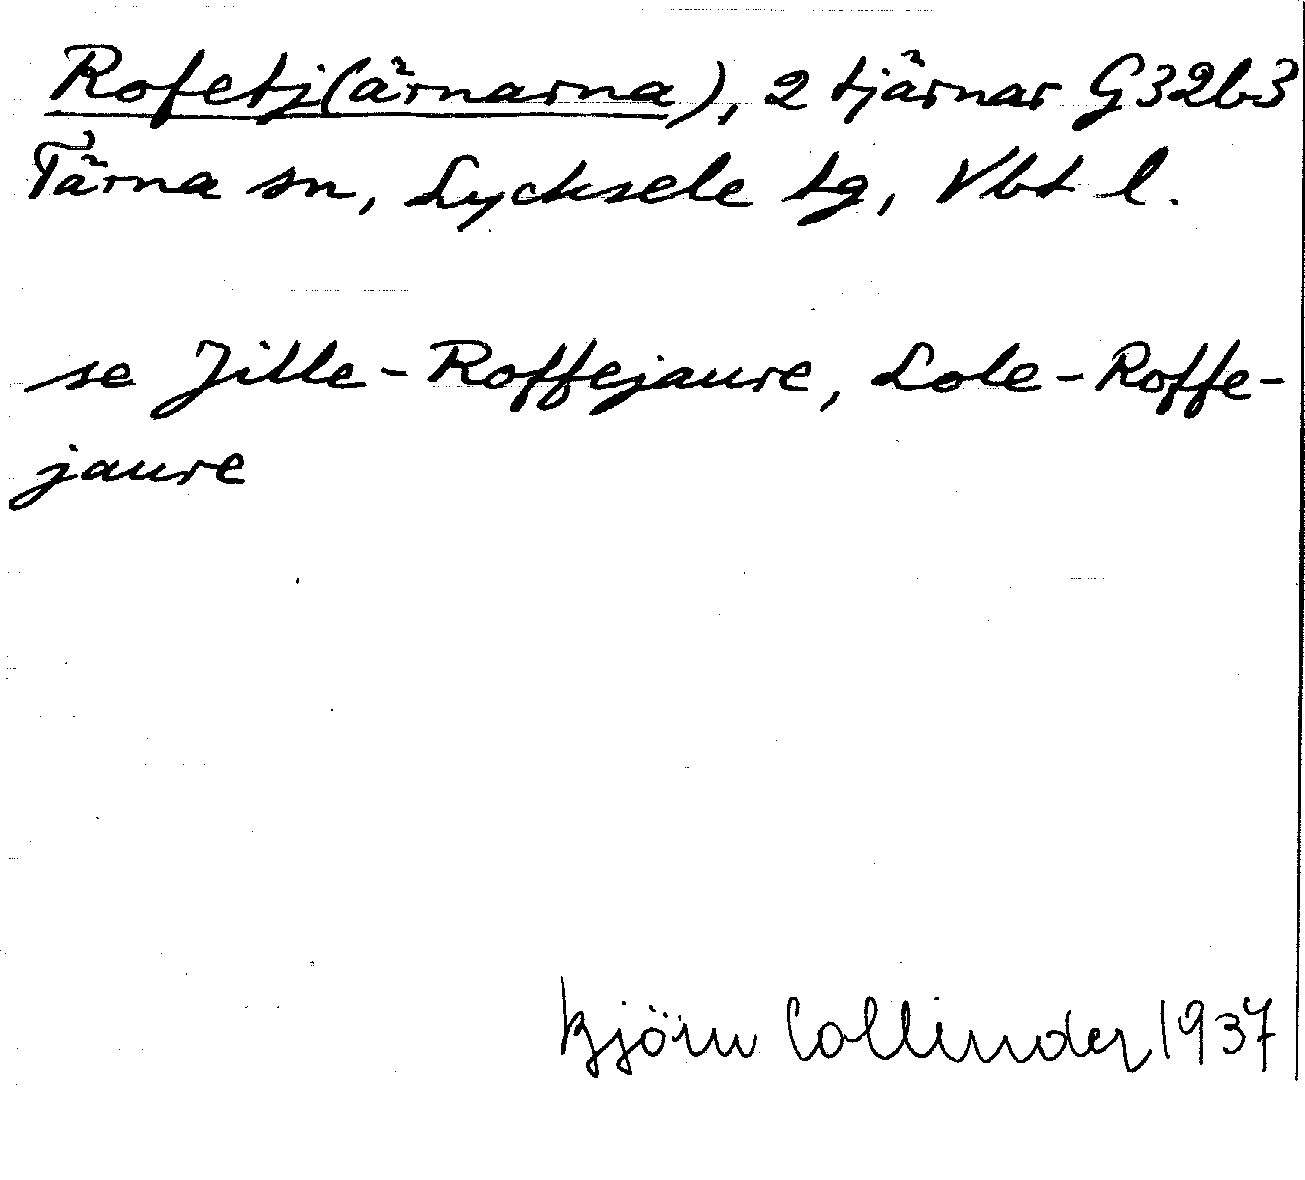 Rofetj(ärnarna), 2 tjärnar G32b3
Tärna sn, Lycksele tg, Vbt l.
se Jille-Roffejaure, Lole-Roffe-
jaure
Björn Collinder 1937